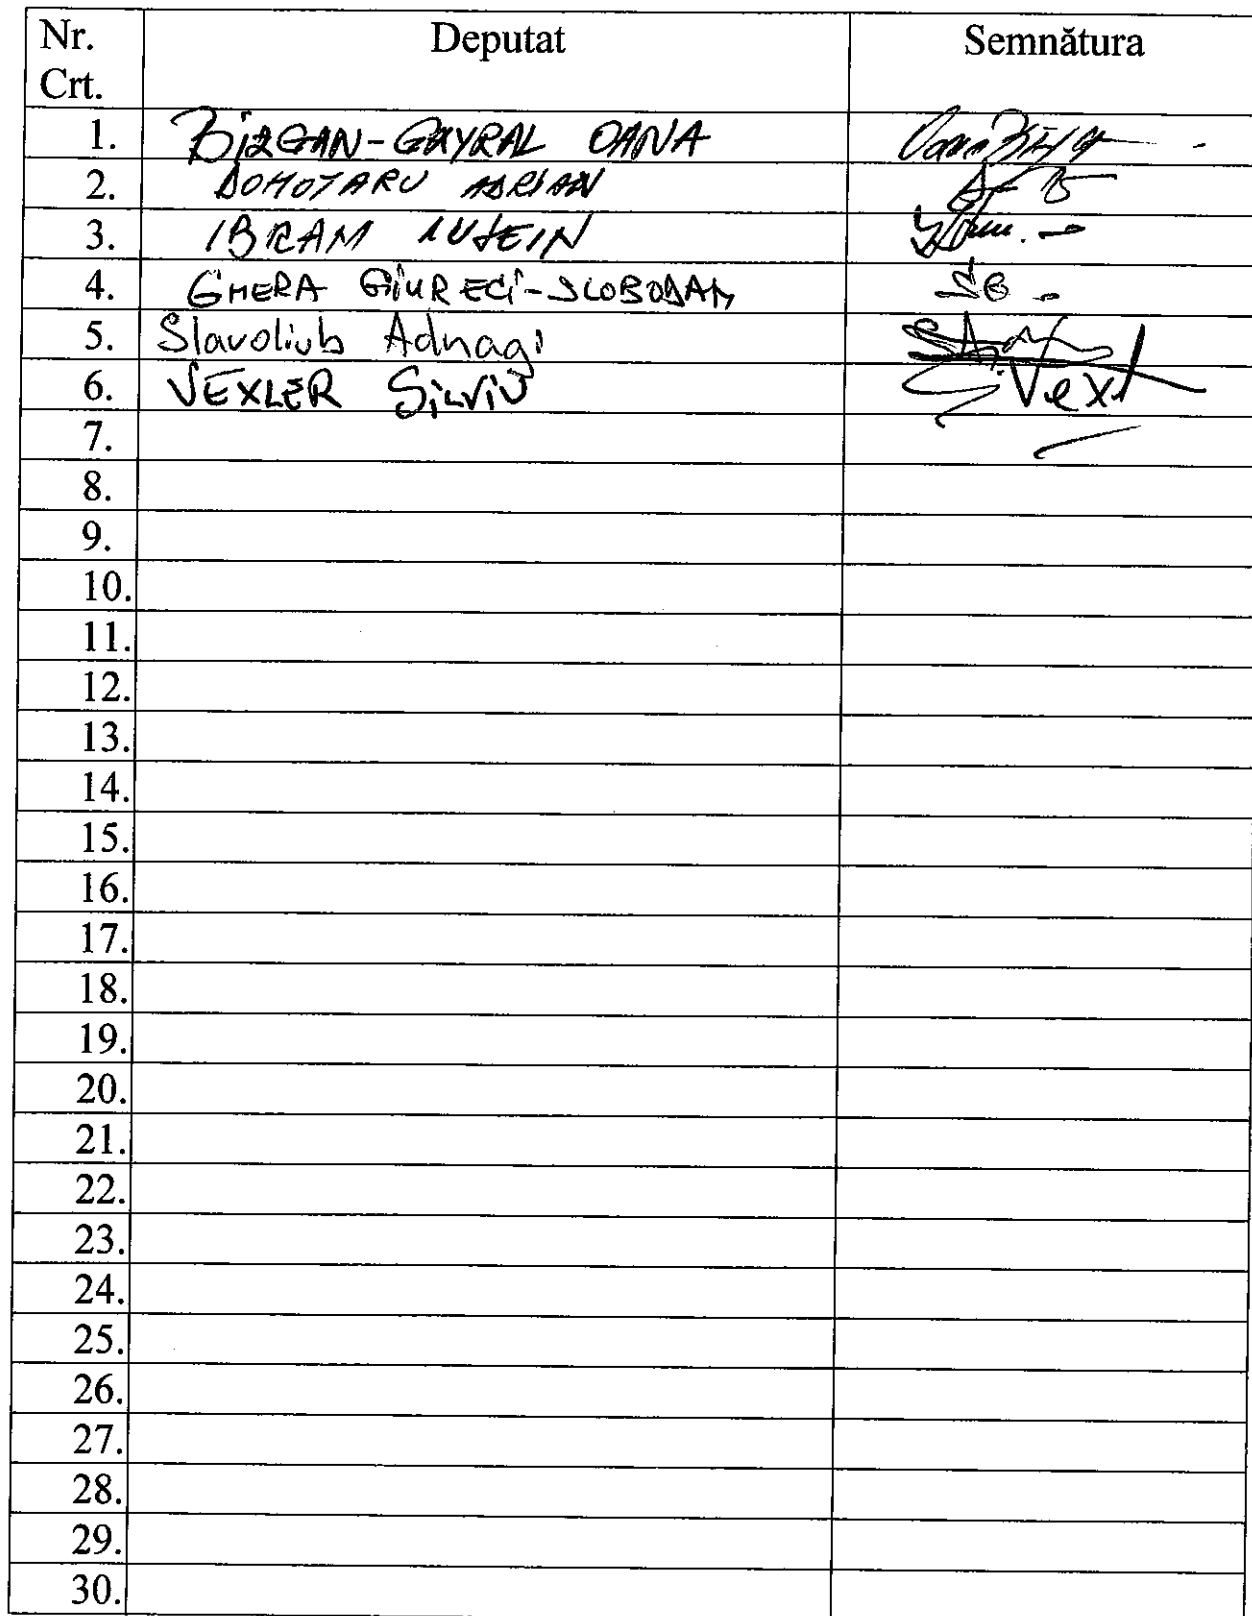 Nr. Crt. Deputat Semnătura
1. BIZGAN-GAYRAL OANA
2. DOHOTARU ADRIAN
3. IBRAM IUSEIN
4. GHERA GIURECI-SLOBODAN
5. Slavoliub Adnagi
6. VEXLER SILVIU Vexl
7.
8.
9.
10.
11.
12.
13.
14.
15.
16.
17.
18.
19.
20.
21.
22.
23.
24.
25.
26.
27.
28.
29.
30.